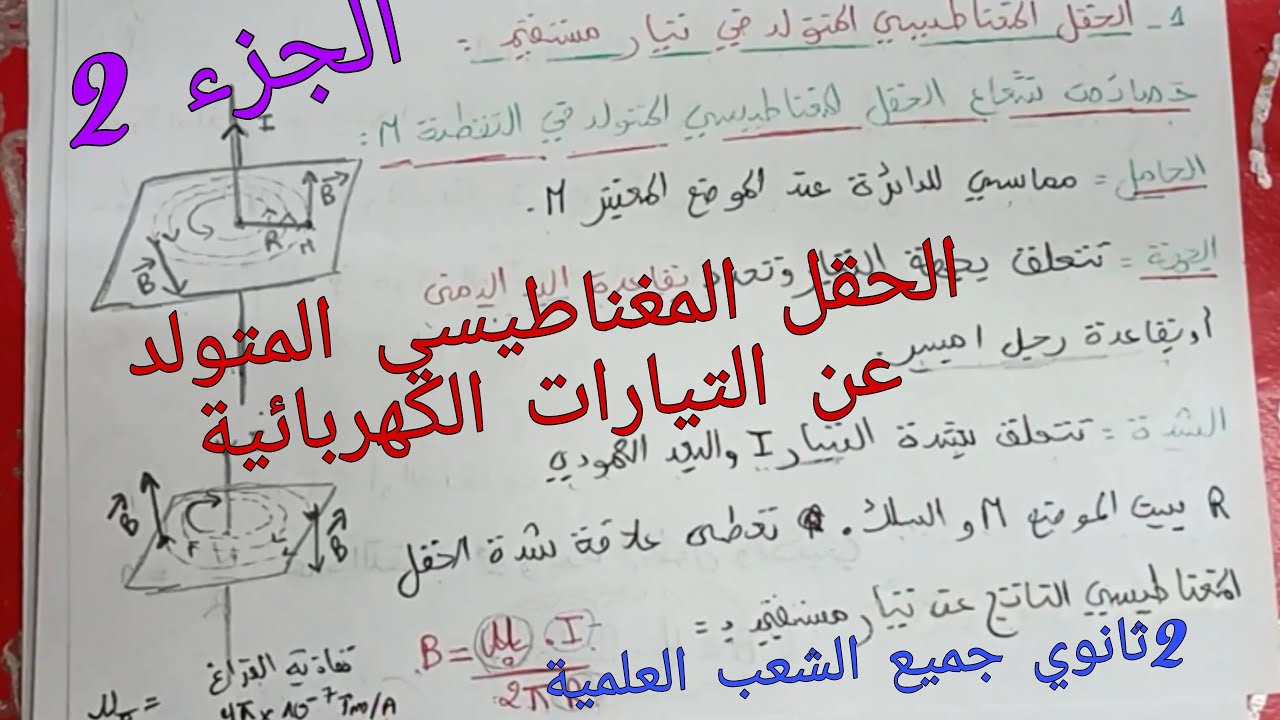 الجزء 2
1 - الحقل المغناطيسي المتولد في تيار مستقيم =
خصائص شعاع الحقل المغناطيسي المتولد في النقطة M :
الحامل = مماسي للدائرة عند الموضع المعتبر M .
الجهة = تتعلق بجهة التيار وتحدد بقاعدة اليد اليمنى
أو بقاعدة رجل امبير
الشدة = تتعلق بشدة التيار I والبعد العمودي
R بين الموضع M والسلك . تعطى علاقة شدة الحقل
المغناطيسي الناتج عن تيار مستقيم بـ =
B = μ₀ . I / 2π
نفاذية الفراغ
4π × 10⁻⁷ Tm/A
I
B
R
M
B
B
B
الحقل المغناطيسي المتولد
عن التيارات الكهربائية
2ثانوي جميع الشعب العلمية